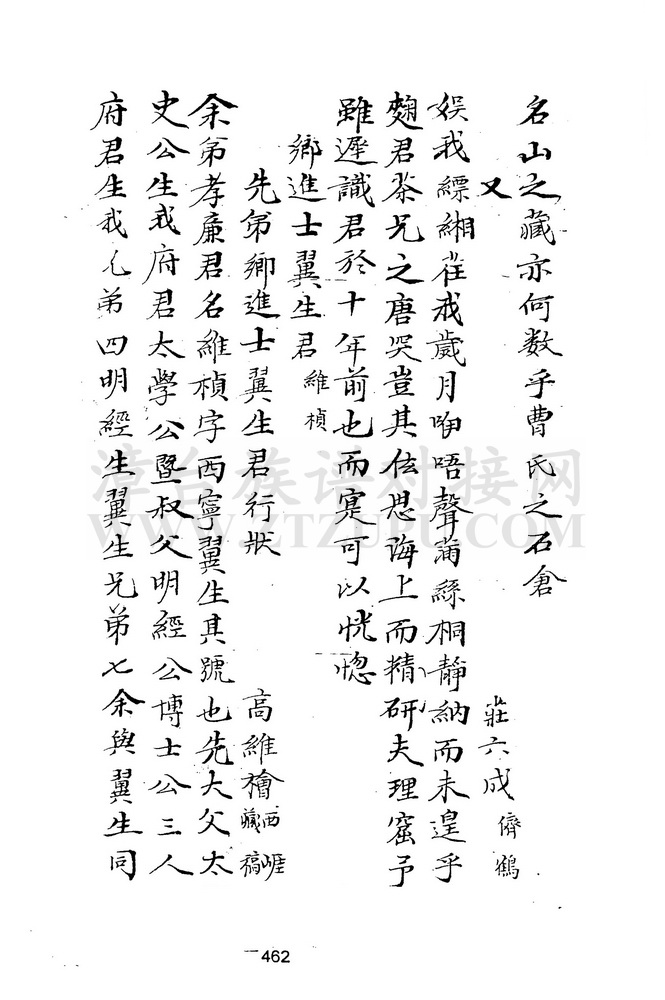 名山之藏亦何数乎曹氏之石倉
又 莊六成 儕鶴
娱我縹緗荏戒歲月咿唔聲满絲桐静納而未遑乎
麴君茶兄之唐哭豈其伭思海上而精研夫理窟予
雖遲識君於十年前也而寔可以恍惚
鄉進士翼生君 維楨
先弟鄉進士翼生君行狀 高維檜 西崕藏稿
余弟孝廉君名維楨字西寧翼生其號也先大父太
史公生我府君太學公暨叔父明經公博士公三人
府君生我兄弟四明經生翼生兄弟七余與翼生同
漳台族谱对接网
WWW.ZTZUPU.COM
462